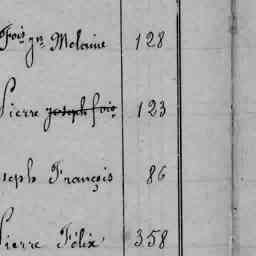 Fois jn Molaine 128
Pierre joseph fois 123
seph François 86
Pierre Félix 358